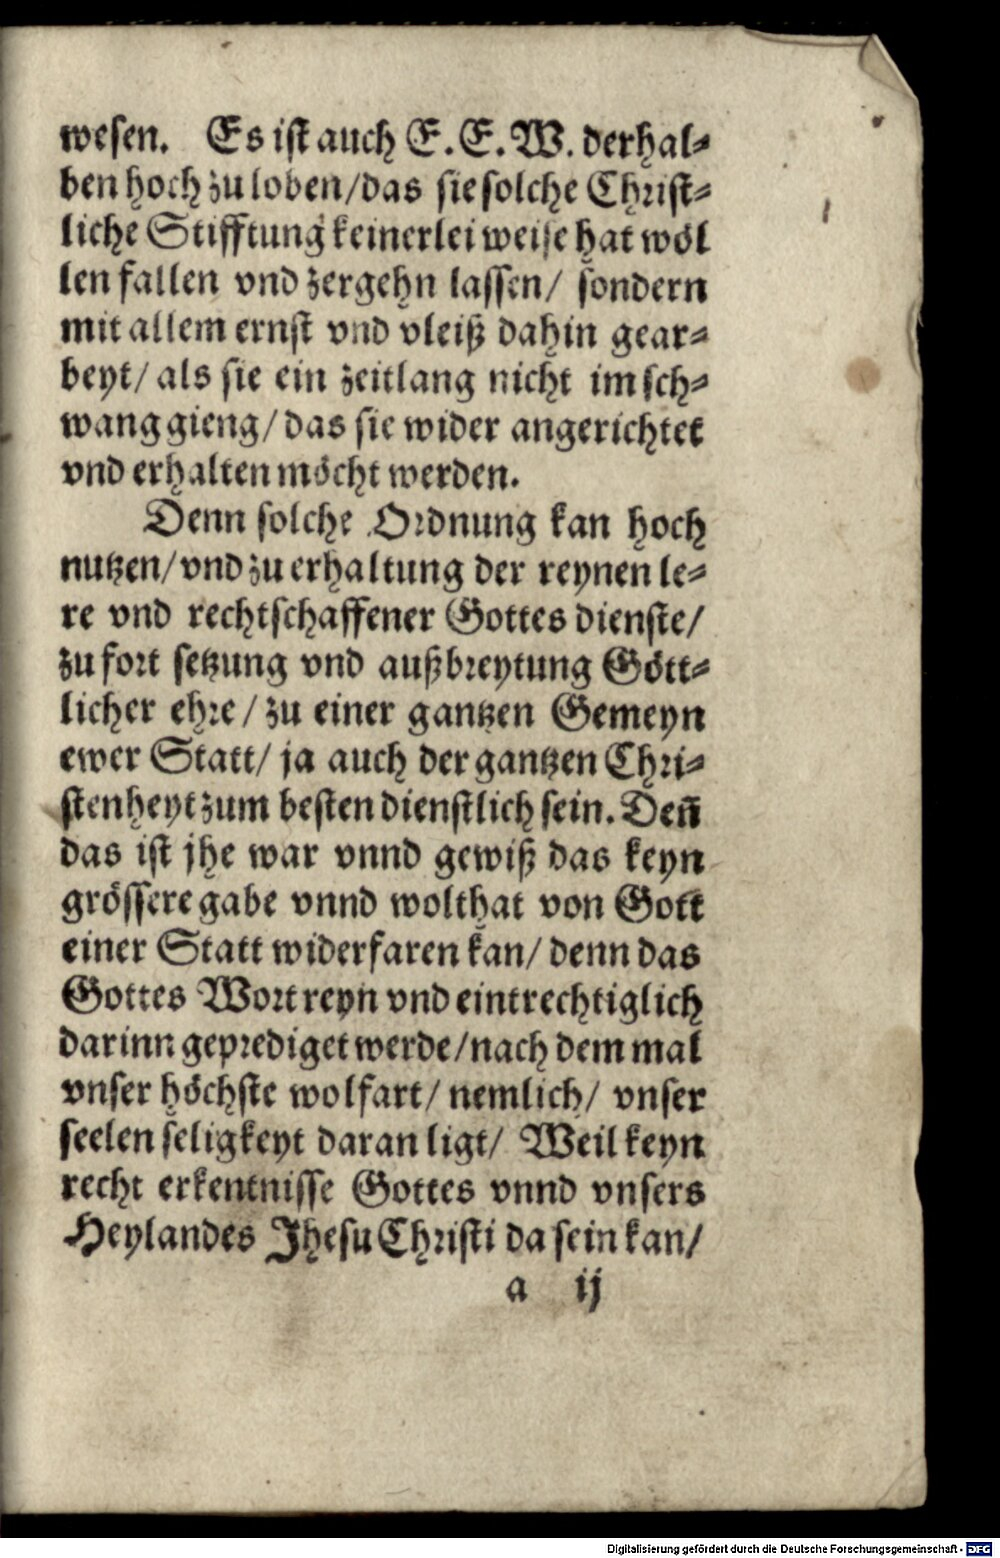 wesen. Es ist auch E. E. W. derhal⸗
ben hoch zu loben/das sie solche Christ⸗
liche Stifftung keinerlei weise hat wöl
len fallen vnd zergehn lassen/ sondern
mit allem ernst vnd vleiß dahin gear⸗
beyt/ als sie ein zeitlang nicht im sch⸗
wang gieng/das sie wider angerichtet
vnd erhalten möcht werden.
Denn solche Ordnung kan hoch
nutzen/vnd zu erhaltung der reynen le⸗
re vnd rechtschaffener Gottes dienste/
zu fort setzung vnd außbreytung Gött⸗
licher ehre/ zu einer gantzen Gemeyn
ewer Statt/ ja auch der gantzen Chri⸗
stenheyt zum besten dienstlich sein. Deñ
das ist jhe war vnnd gewiß das keyn
grössere gabe vnnd wolthat von Gott
einer Statt widerfaren kan/ denn das
Gottes Wort reyn vnd eintrechtiglich
darinn geprediget werde/nach dem mal
vnser höchste wolfart/ nemlich/ vnser
seelen seligkeyt daran ligt/ Weil keyn
recht erkentnisse Gottes vnnd vnsers
Heylandes Jhesu Christi da sein kan/
a ij
Digitalisierung gefördert durch die Deutsche Forschungsgemeinschaft - DFG